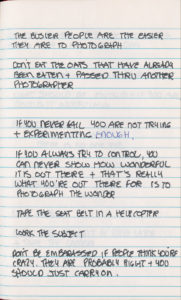 THE BUSIER PEOPLE ARE THE EASIER
THEY ARE TO PHOTOGRAPH
DON'T EAT THE OATS THAT HAVE ALREADY
BEEN EATEN + PASSED THRU ANOTHER
PHOTOGRAPHER
IF YOU NEVER FAIL YOU ARE NOT TRYING
+ EXPERIMENTING ENOUGH.
IF YOU ALWAYS TRY TO CONTROL, YOU
CAN NEVER SHOW HOW WONDERFUL
IT IS OUT THERE + THAT'S REALLY
WHAT YOU'RE OUT THERE FOR IS TO
PHOTOGRAPH THE WONDER
TAPE THE SEAT BELT IN A HELICOPTER
WORK THE SUBJECT
DON'T BE EMBARASSED IF PEOPLE THINK YOU'RE
CRAZY. THEY ARE PROBABLY RIGHT + YOU
SHOULD JUST CARRY ON.